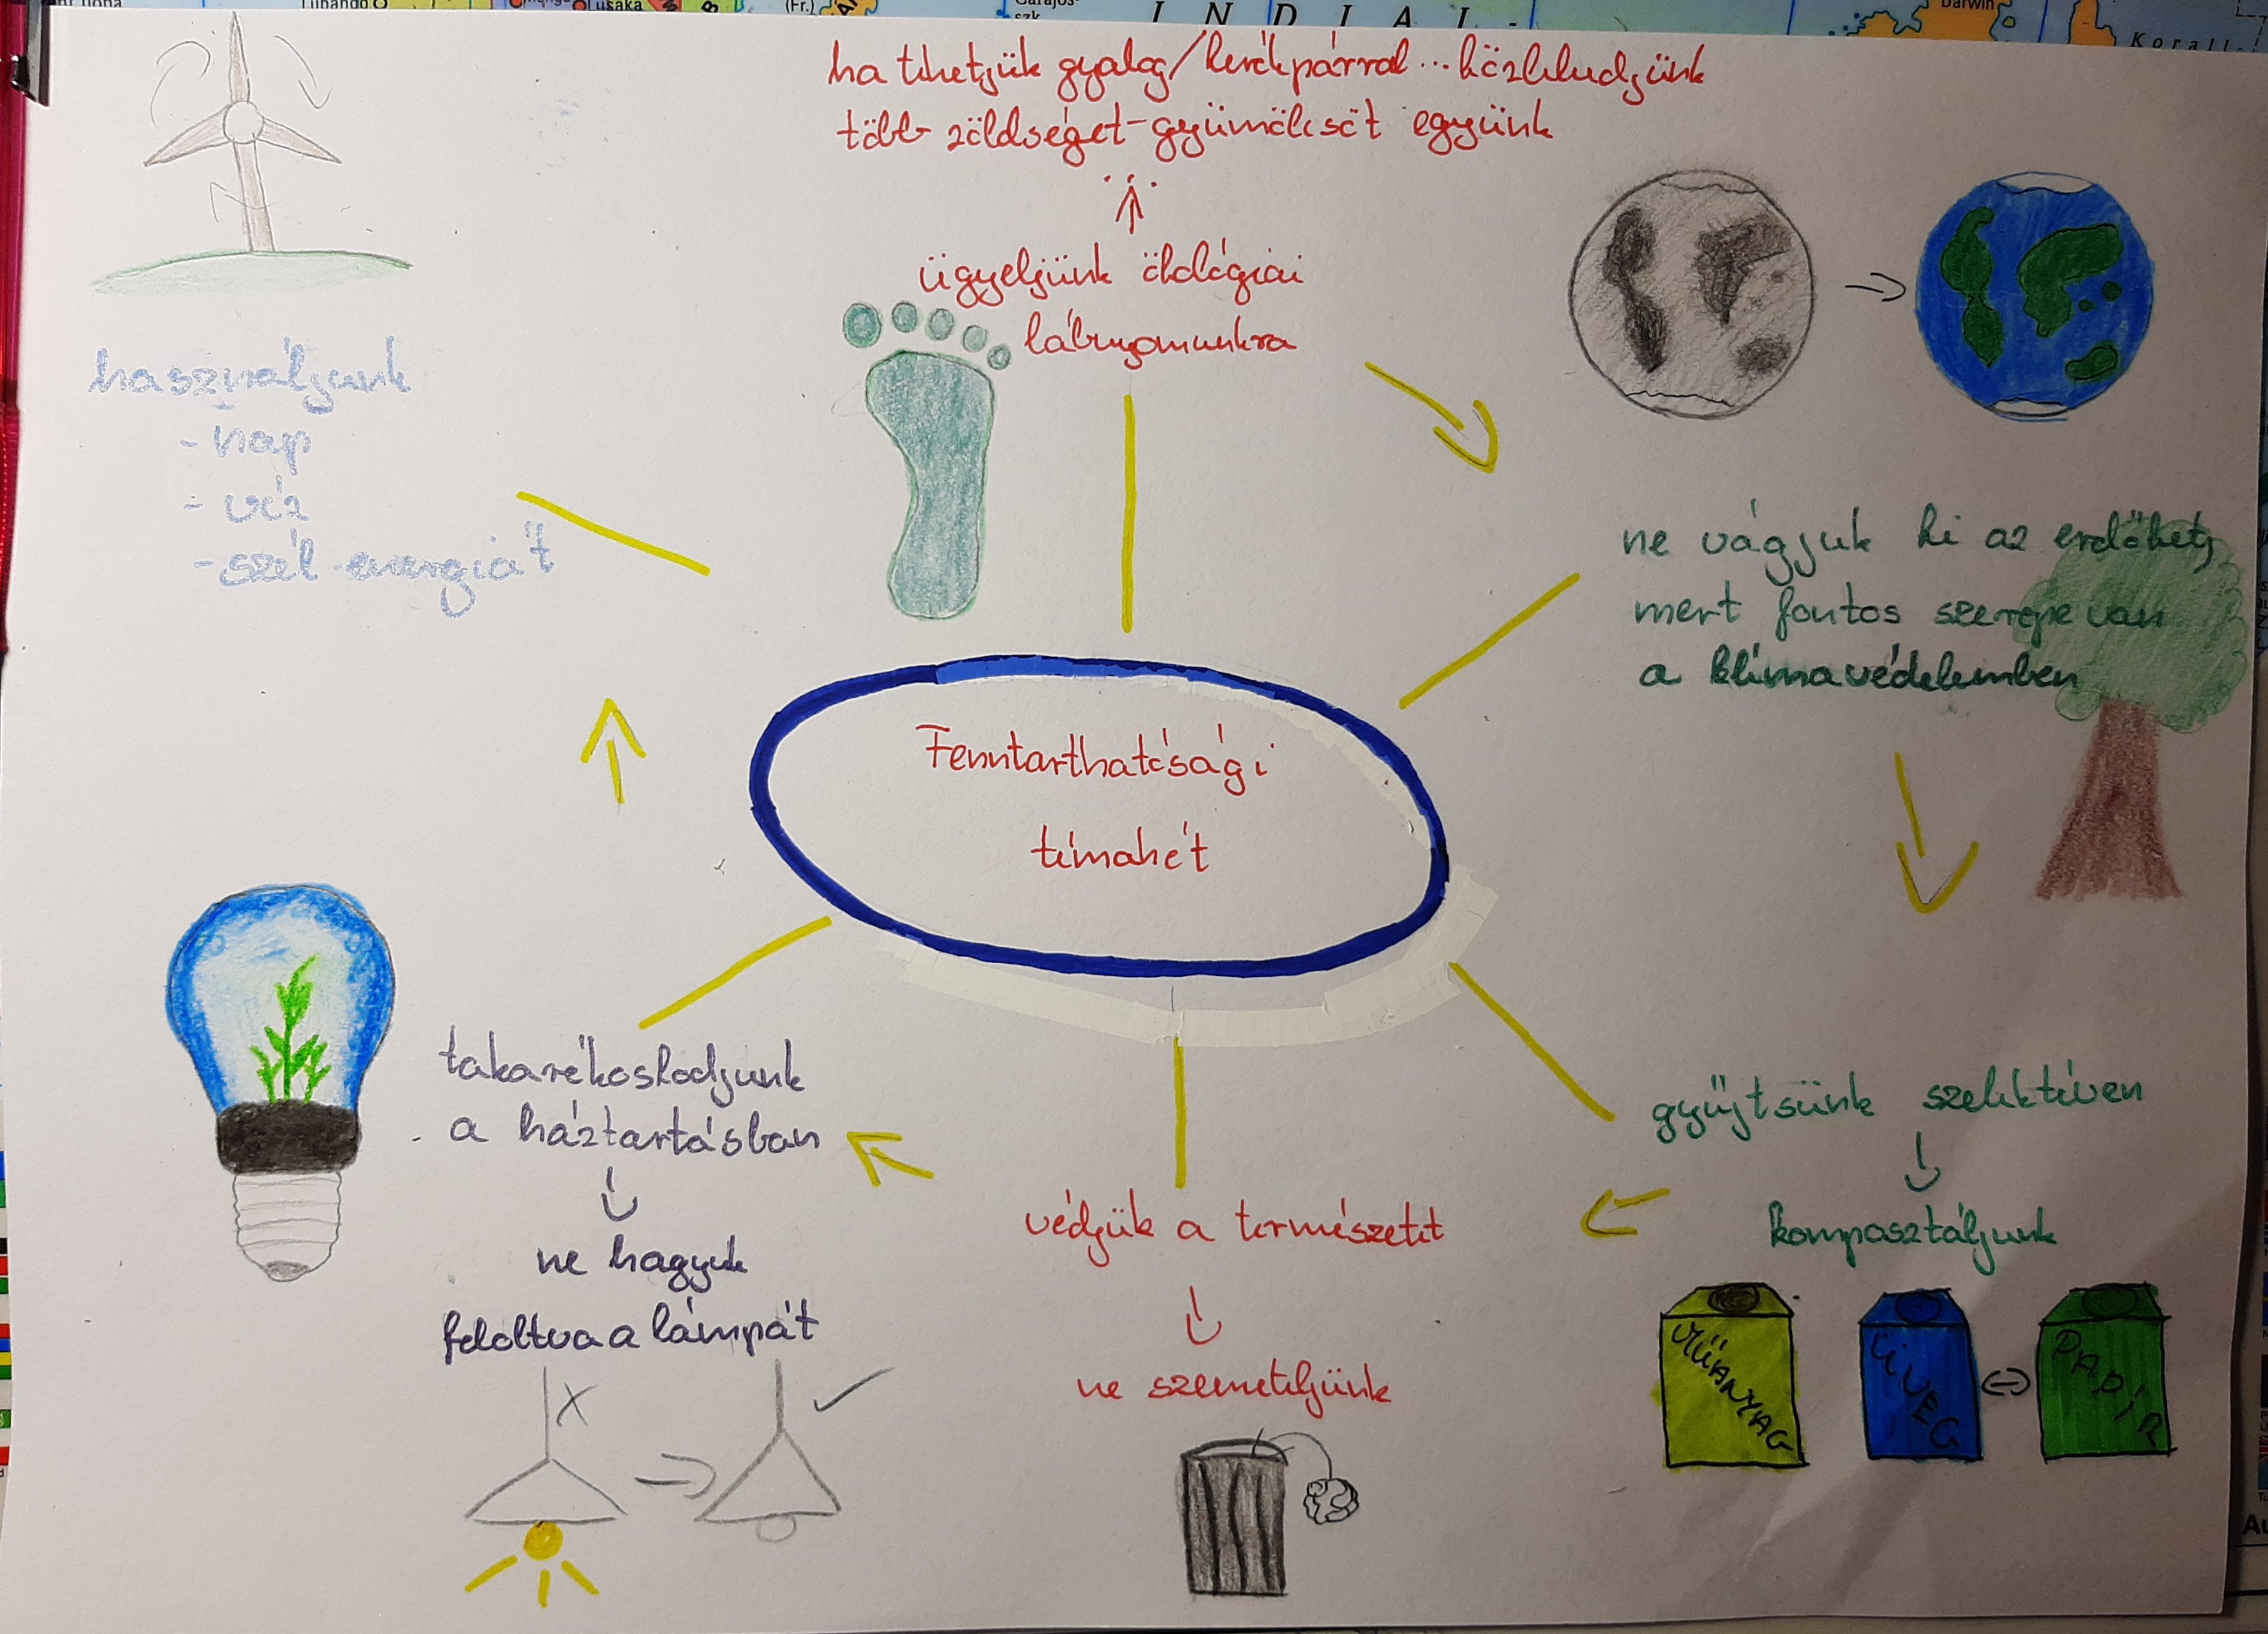 ha tehetjük gyalog/kerékpárral...közlekedjünk
több zöldséget-gyümölcsöt együnk
ügyeljünk ökológiai
lábnyomunkra
használjunk
- nap
- víz
- szél energiát
ne vágjuk ki az erdőket,
mert fontos szerepe van
a klímavédelemben
Fenntarthatósági
témahét
takarékoskodjunk
a háztartásban
ne hagyuk
feloltva a lámpát
védjük a természetet
ne szemeteljünk
gyűjtsünk szelektíven
komposztáljunk
MŰANYAG
ÜVEG
PAPÍR
I N D I A I -
Lusaka
(Fr.)
Darwin
Korall